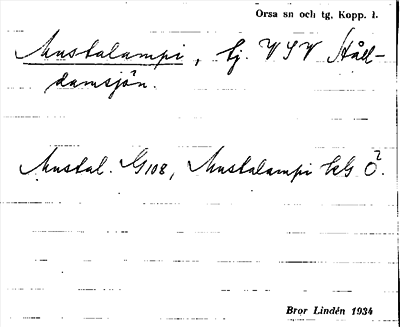 Orsa sn och tg, Kopp. l.
Mustalampi, tj. VSV Ståll-
damsjön.
Mustal. G108, Mustalampi kG Ö?.
Bror Lindén 1934